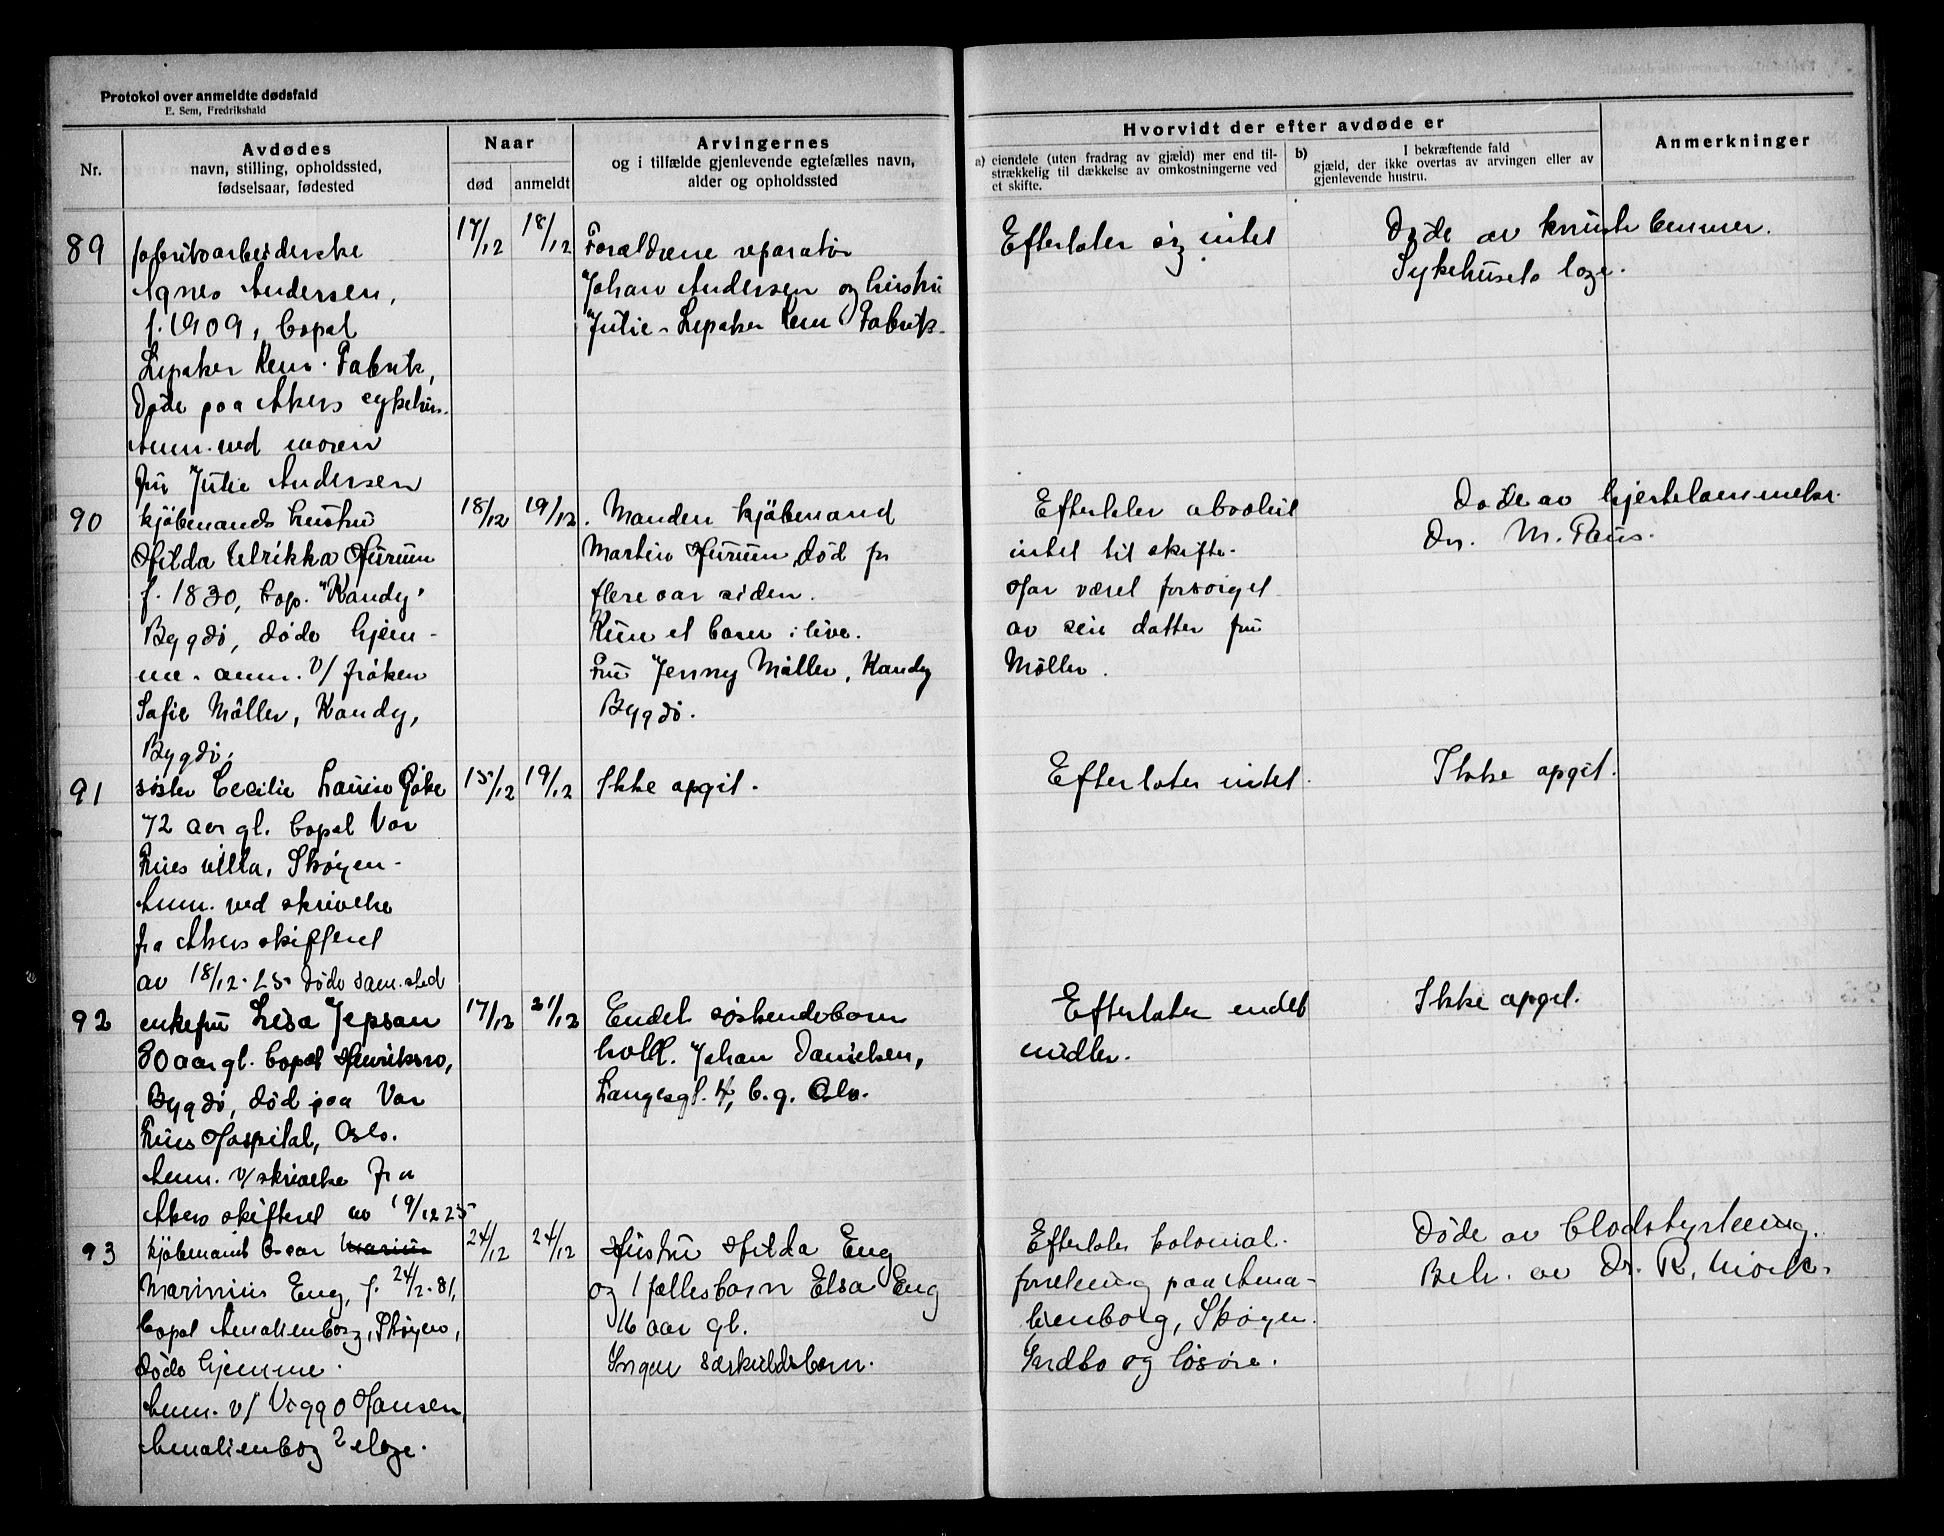 Protokol over anmeldte dødsfald
E. Sem, Fredrikshald
Nr.
Avdødes
navn, stilling, opholdssted,
fødselsaar, fødested
Naar
død
anmeldt
Arvingernes
og i tilfælde gjenlevende egtefælles navn,
alder og opholdssted
Hvorvidt der efter avdøde er
a) eiendele (uten fradrag av gjæld) mer end til-
strækkelig til dækkelse av omkostningerne ved
et skifte.
b) I bekræftende fald
gjæld, der ikke overtas av arvingen eller av
gjenlevende hustru.
Anmerkninger
89
fabrikoarbeiderske
Agnes Andersen,
f. 1909, bopæl
Lysaker Kem. Fabrik,
Døde paa Akers sykehus.
Anm. ved moren
fru Julie Andersen
17/12
18/12
Forældrene reparatør
Johan Andersen og hustru
Julie - Lysaker Kem Fabrik.
Efterlater sig intet
Døde av
Sykehusets læge.
90
kjøbmands hustru
Hilda Ulrikka Hurum
f. 1830, bop. "Kandy"
Bygdø, døde hjem-
me. anm. v/ frøken
Sofie Møller, Kandy,
Bygdø.
18/12
19/12
Manden kjøbmand
Martin Hurum død for
flere aar siden.
Kun et barn i live.
Fru Jenny Møller, Kandy
Bygdø.
Efterlater absolut
intet til skifte.
Har været forsørget
av sin datter fru
Møller.
Døde av hjertelammelse.
Dr. M. Paus.
91
søster Cecilie Louise
72 aar gl. bopæl Vor
Frues villa, Skøyen-
Anm. ved skrivelse
fra Akers skifteret
av 18/12-25. døde sam. sted
15/12
19/12
Ikke opgit.
Efterlater intet.
Ikke opgit.
92
enkefru Lisa Jepsan
80 aar gl. bopæl Henriksro,
Bygdø, død paa Vor
Frues Hospital, Oslo.
Anm. v/ skrivelse fra
Akers skifteret av 19/12 25
17/12
21/12
Endel søskendebarn
hvoll. Johan Danielsen,
Langesgt. 4, b. g. Oslo.
Efterlater endel
midler.
Ikke opgit.
93
kjøbmand Oscar Marius
Marinius Eng, f. 24/2-81,
bopæl Amalienborg, Skøyen,
døde hjemme.
Anm. v/ Viggo Hansen,
Amalienborg 2 etage.
24/12
24/12
Hustru Hilda Eng
og 1 fællesbarn Elsa Eng
16 aar gl.
Ingen særkuldsbarn.
Efterlater kolonial-
forretning paa Ama-
lienborg, Skøyen.
Indbo og løsøre.
Døde av blodstyrtning.
Beh. av Dr. R. Mørk.